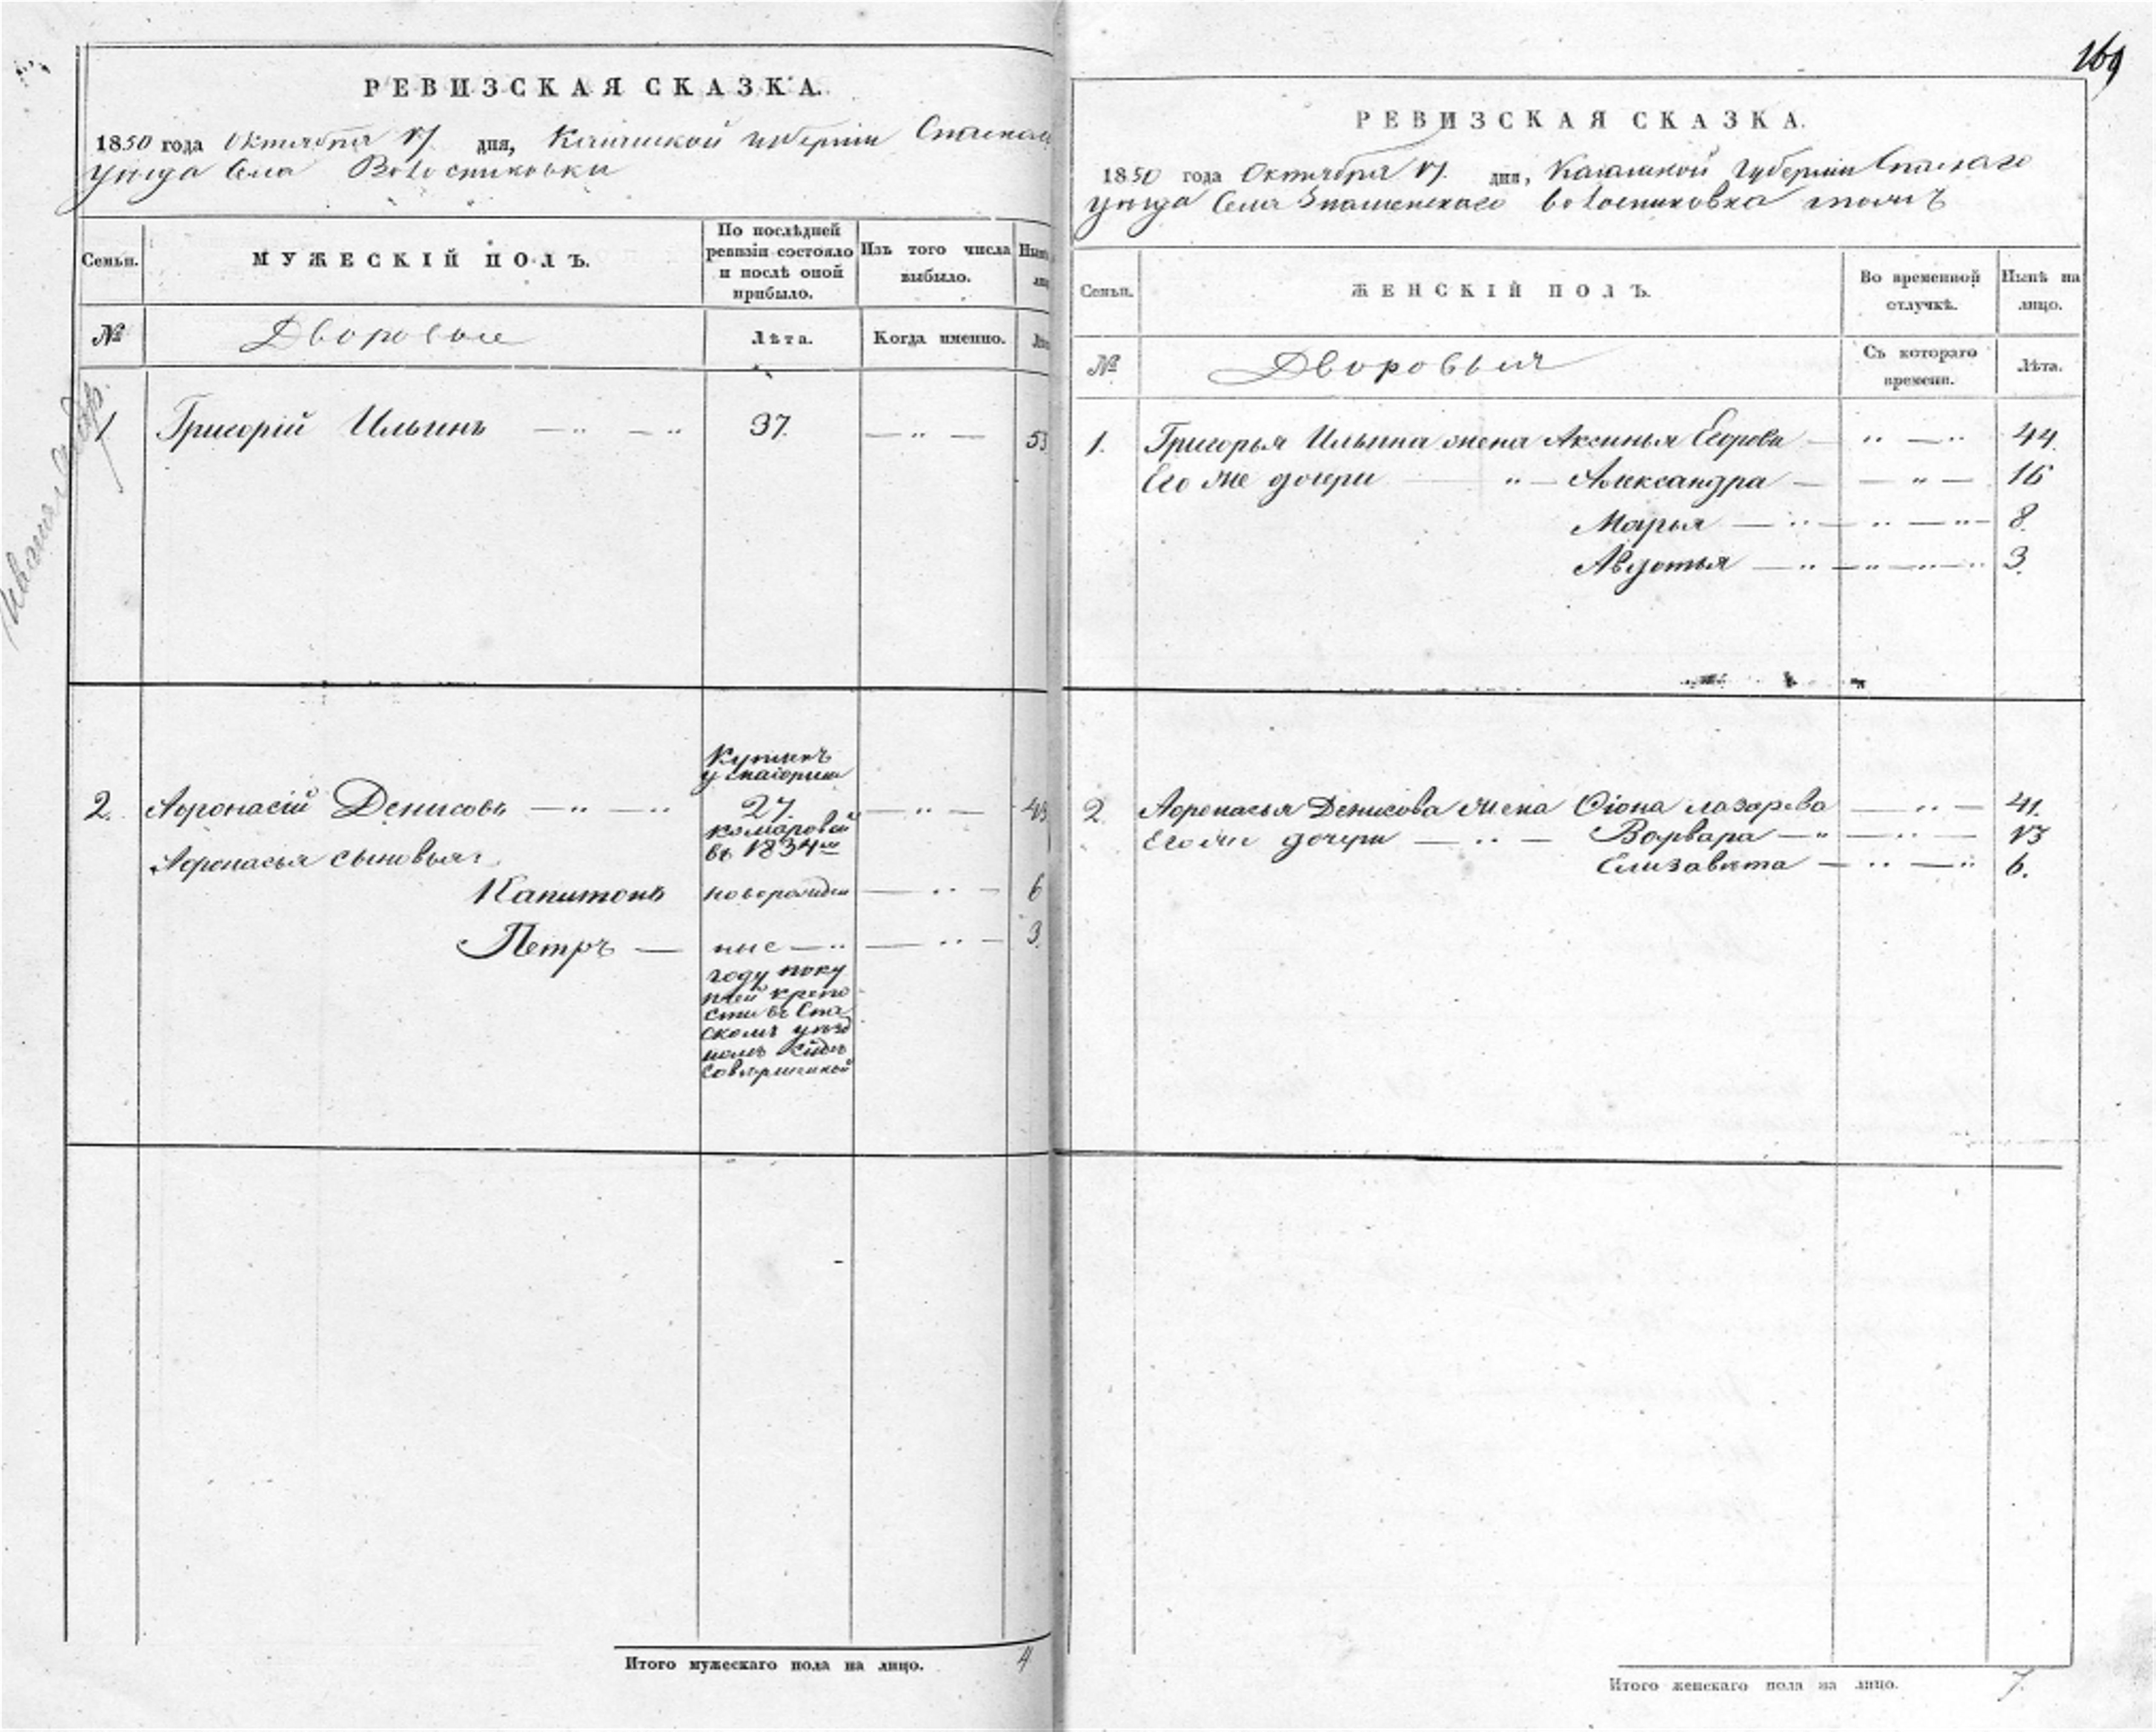 169
РЕВИЗСКАЯ СКАЗКА.
1850 года Октября 17 дня, Казанской губернии Спаскаго
уезда Села Волостниковки
Семьи.
МУЖЕСКІЙ ПОЛЪ.
По послѣдней
ревизіи состояло
и послѣ оной
прибыло.
Изъ того числа
выбыло.
№
Дворовые
Лѣта.
Когда именно.
1
Григорій Ильинъ — „ — „ 37. — „ — 53
Купленъ
2. Афонасій Денисовъ — „ — „ 27. — „ — 43
комаровой
въ 1834мъ
Афонасья сыновья:
Капитонъ новорожден — „ — 6
Петръ — ные — „ — „ — 3.
году поку
пчей крепо
сти въ Спа
скомъ уезд
номъ Суде
совершенной
Итого мужескаго пола на лицо. 4
РЕВИЗСКАЯ СКАЗКА.
1850 года Октября 17. дня, Казанской Губернии Спаскаго
уезда Села Знаменскаго Волостниковка тожъ
Семьи.
ЖЕНСКІЙ ПОЛЪ.
Во временной
отлучкѣ.
Нынѣ на
лицо.
№
Дворовыя
Съ котораго
времени.
Лѣта.
1. Григорья Ильина жена Аксинья Егорова — „ — „ 44.
Его же дочери — „ — Александра — — „ — 16
Марья — „ — „ — „ — 8.
Авдотья — „ — „ — „ 3.
2. Афонасья Денисова жена Фіона лазарева — „ — 41.
Его же дочери — „ — Варвара — „ — „ — 13
Елизавета — „ — „ 6.
Итого женскаго пола на лицо. 7.